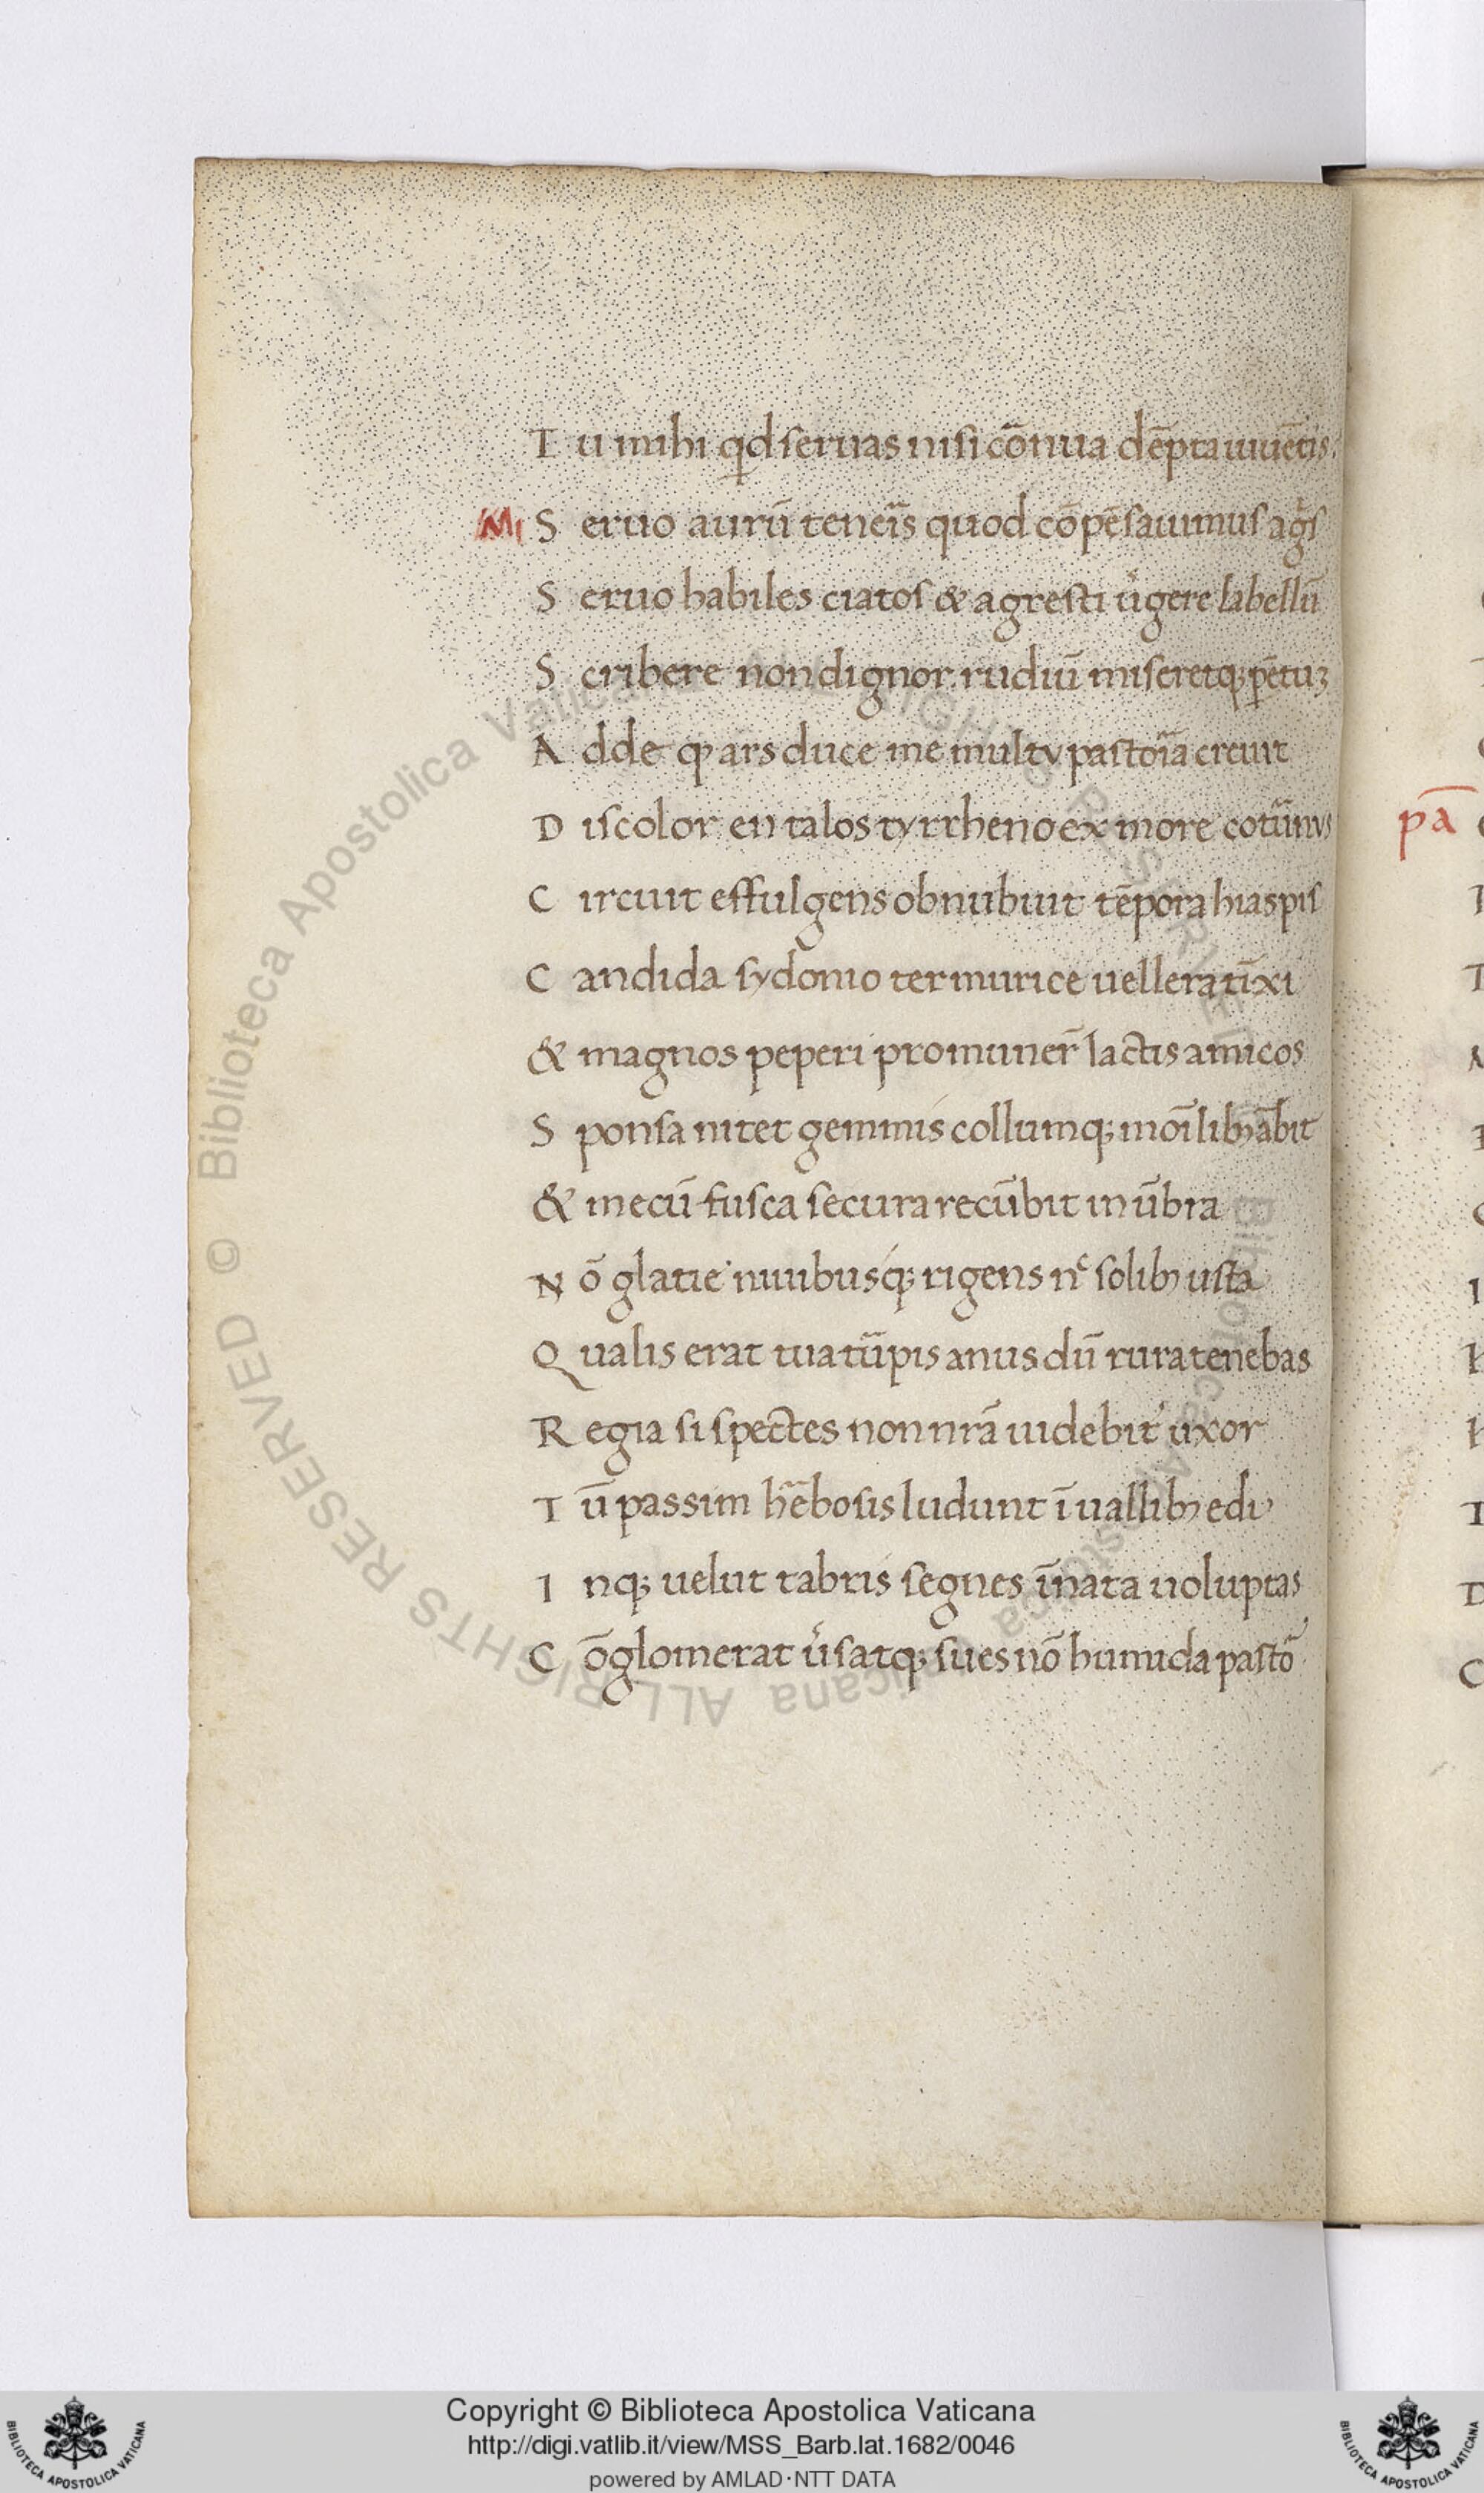 T u mihi qͥd ſeruas niſi cōnua dēpta iuuētis.
Mi S eruo aurū teneīs quod cōpēſauimuſ agͥſ
S eruo habiles ciatoſ & agreſti ūgere labellū
S cribere non dignor rudiū miſeretq; petuꝫ
A dde ꝙ ars duce me multū paſtoīa creuit
D iſcolor en talos tyrrheno ex more cotūnus
C ircuit effulgens obnubuit tēpora hiaspiſ
C andida ſydonio ter murice uellera tīxi
& magnos peperi pro muner̄ lactis amicos
S ponſa nitet gemmis collumq; moīlibꝫ ābit
& mecū fuſca ſecura recūbit in ūbra
N ō glatie niuibuſq; rigens nͨ ſolibꝫ uſta
Q ualis erat tua tūpis anus dū rura tenebas
R egia ſi ſpectes non nr̄ā uidebit᷑ uxor
T ū paſſim hēboſis ludunt ī uallibꝫ edi
I nq; uelut tabris ſegnes īnata uoluptas
C ōglomerat ūſatq; ſues nō humida paſtō
pā
Copyright © Biblioteca Apostolica Vaticana
http://digi.vatlib.it/view/MSS_Barb.lat.1682/0046
powered by AMLAD·NTT DATA